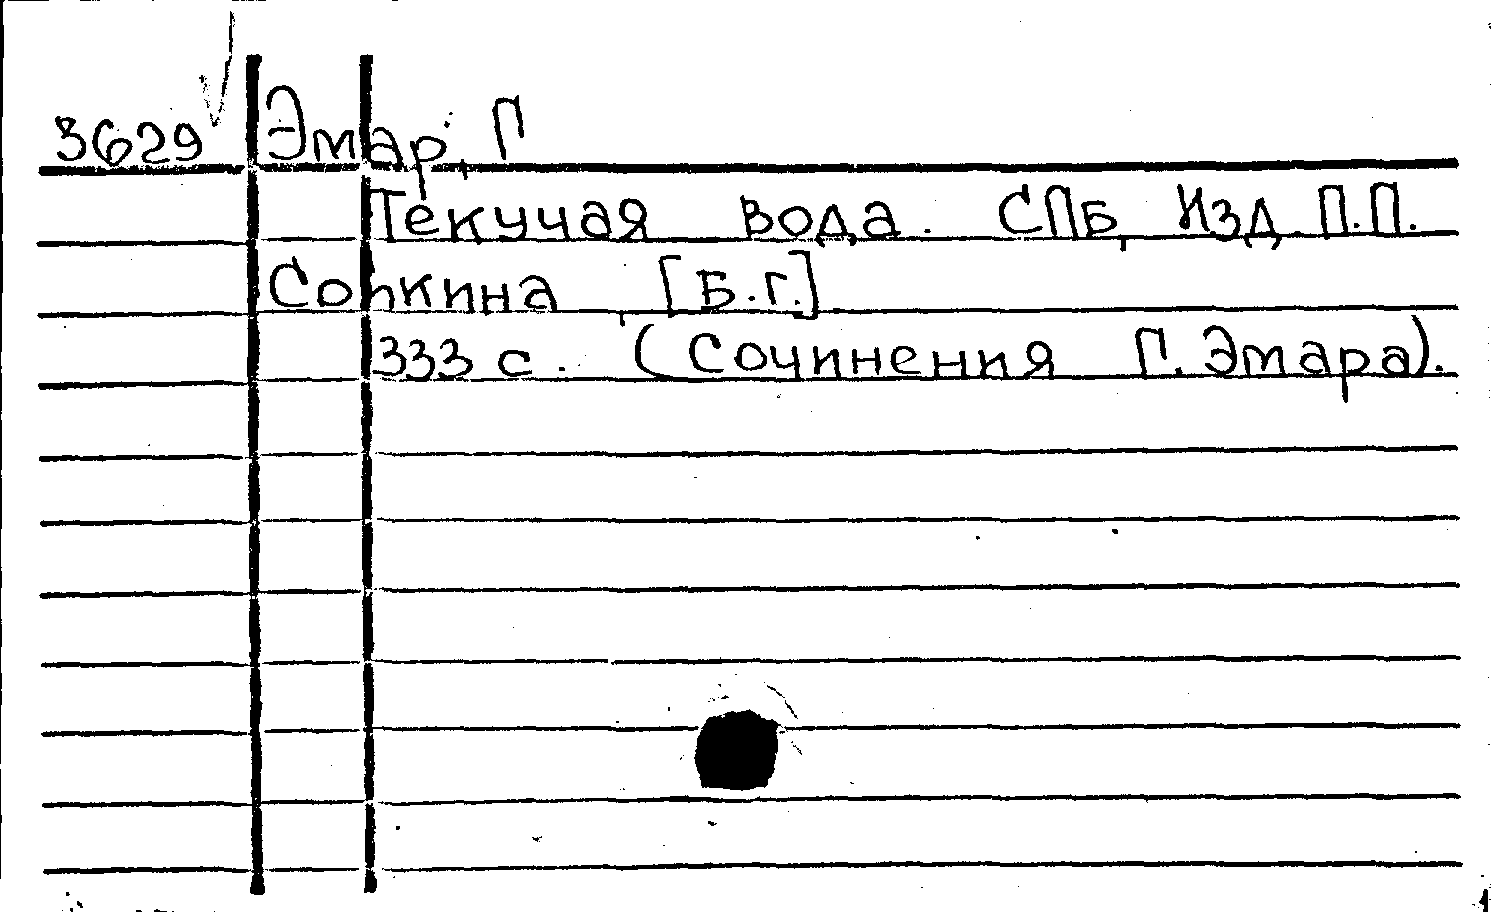 3629 Эмар, Г
Текучая вода. СПБ, Изд. П.П.
Сойкина, [Б.г.]
333 с. (Сочинения Г. Эмара).